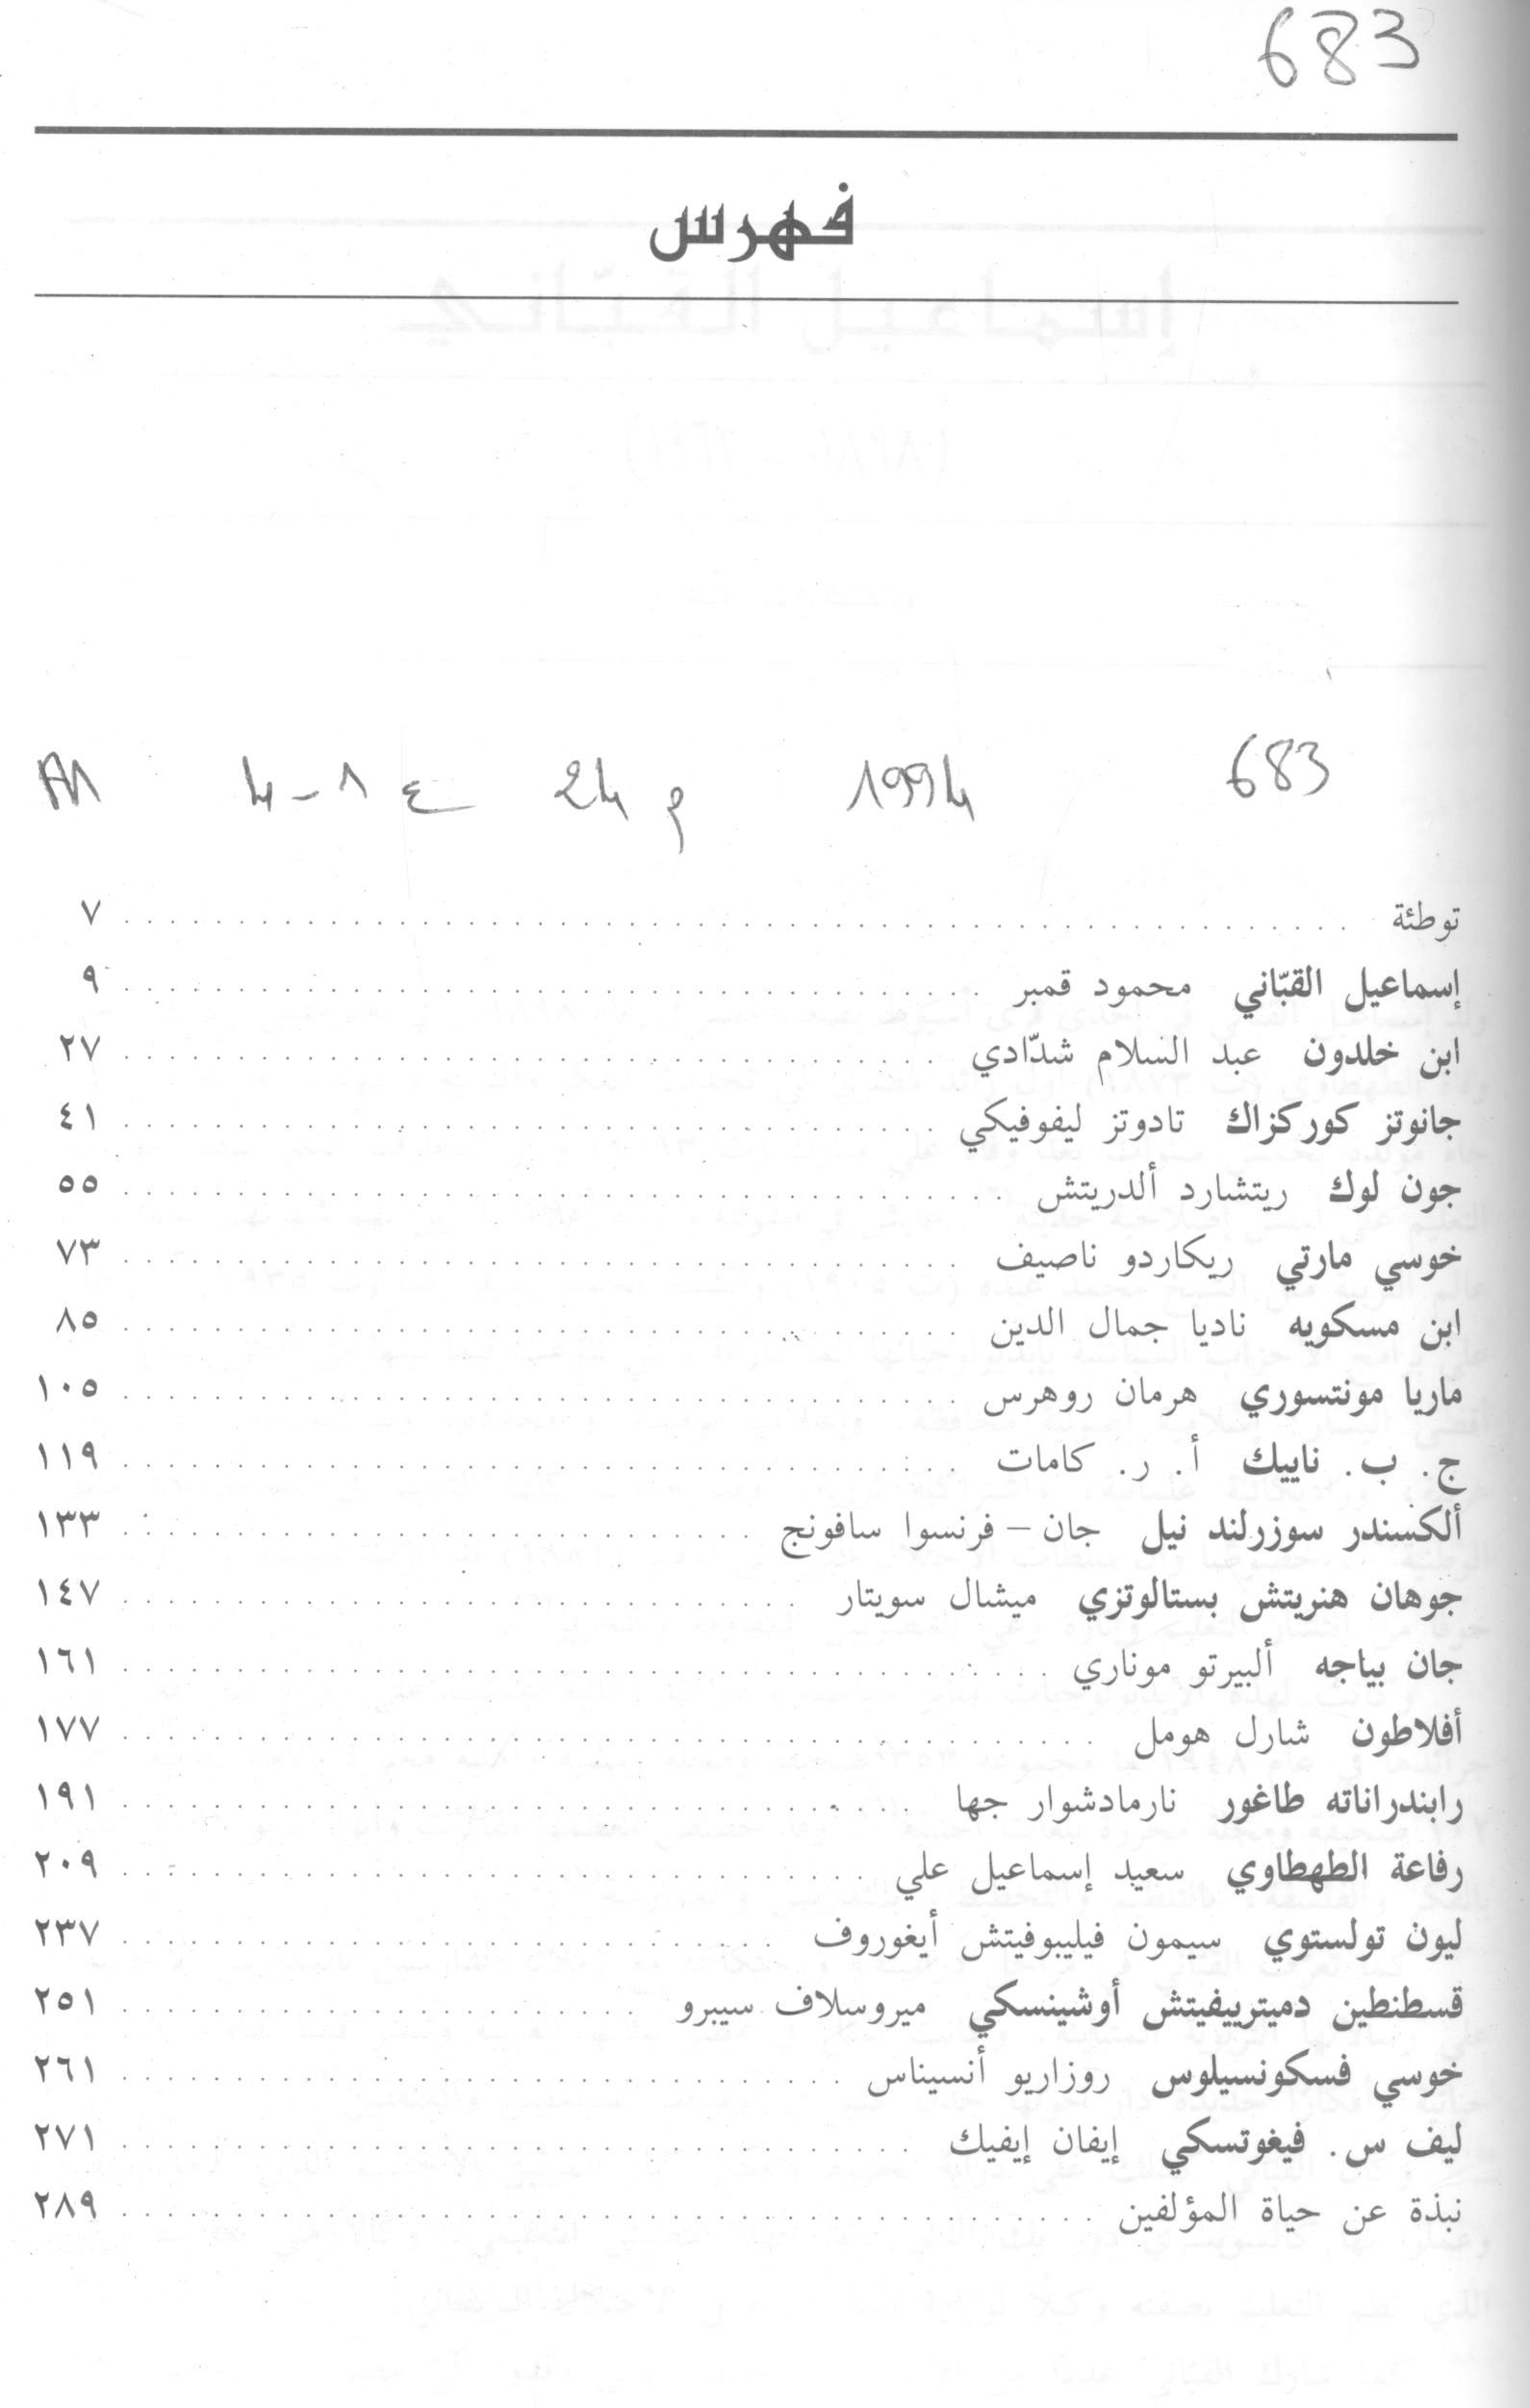 683
فهرس
683 1994 م 24 ع 1-4
توطئة ٧
إسماعيل القبّاني محمود قمبر ٩
ابن خلدون عبد السلام شدّادي ٢٧
جانوتز كوركزاك تادوتز ليفوفيكي ٤١
جون لوك ريتشارد ألدريتش ٥٥
خوسي مارتي ريكاردو ناصيف ٧٣
ابن مسكويه ناديا جمال الدين ٨٥
ماريا مونتسوري هرمان روهرس ١٠٥
ج. ب. ناييك أ. ر. كامات ١١٩
ألكسندر سوزرلند نيل جان – فرنسوا سافونج ١٣٣
جوهان هنريتش بستالوتزي ميشال سويتار ١٤٧
جان بياجه ألبيرتو موناري ١٦١
أفلاطون شارل هومل ١٧٧
رابندراناته طاغور نارمادشوار جها ١٩١
رفاعة الطهطاوي سعيد إسماعيل علي ٢٠٩
ليون تولستوي سيمون فيليبوفيتش أيغوروف ٢٣٧
قسطنطين دميترييفيتش أوشينسكي ميروسلاف سيبرو ٢٥١
خوسي فسكونسيلوس روزاريو أنسيناس ٢٦١
ليف س. فيغوتسكي إيفان إيفيك ٢٧١
نبذة عن حياة المؤلفين ٢٨٩